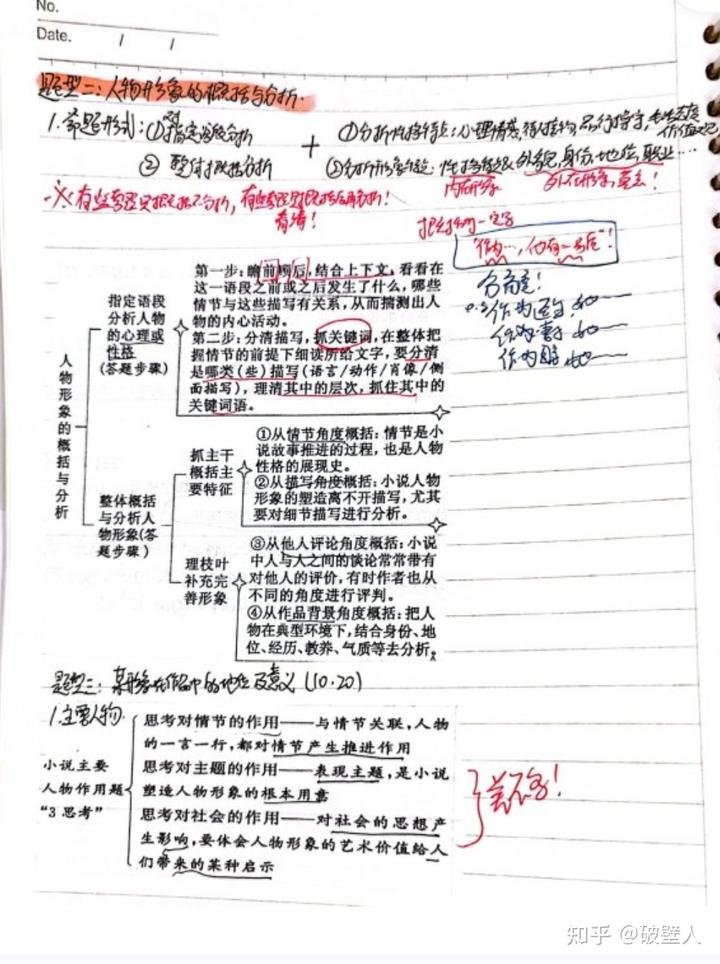 No.
Date. / /
题型二:人物形象的概括与分析.
1.命题形式:①指定语段分析 + ①分析性格特点:心理情感
②整体概括分析 ②分析形象特征:性格特征及外貌,身份,地位,职业…
内在形象 外在形象
有些考题只概括不分析,
看清!
分高定!
第一步:瞻前顾后,结合上下文,看看在
这一语段之前或之后发生了什么,哪些
情节与这些描写有关系,从而揣测出人
物的内心活动。
指定语段
分析人物
的心理或
性格
(答题步骤)
第二步:分清描写,抓关键词,在整体把
握情节的前提下细读所给文字,要分清
是哪类(些)描写(语言/动作/肖像/侧
面描写),理清其中的层次,抓住其中的
关键词语。
人物形象的概括与分析
抓主干
概括主
要特征
①从情节角度概括:情节是小
说故事推进的过程,也是人物
性格的展现史。
②从描写角度概括:小说人物
形象的塑造离不开描写,尤其
要对细节描写进行分析。
整体概括
与分析人
物形象(答
题步骤)
理枝叶
补充完
善形象
③从他人评论角度概括:小说
中人与人之间的谈论常常带有
对他人的评价,有时作者也从
不同的角度进行评判。
④从作品背景角度概括:把人
物在典型环境下,结合身份、地
位、经历、教养、气质等去分析。
题型三:某形象在作品中的地位及意义(10·20)
1.主要人物
小说主要
人物作用题
“3思考”
思考对情节的作用——与情节关联,人物
的一言一行,都对情节产生推进作用
思考对主题的作用——表现主题,是小说
塑造人物形象的根本用意
思考对社会的作用——对社会的思想产
生影响,要体会人物形象的艺术价值给人
们带来的某种启示
知乎 @破壁人